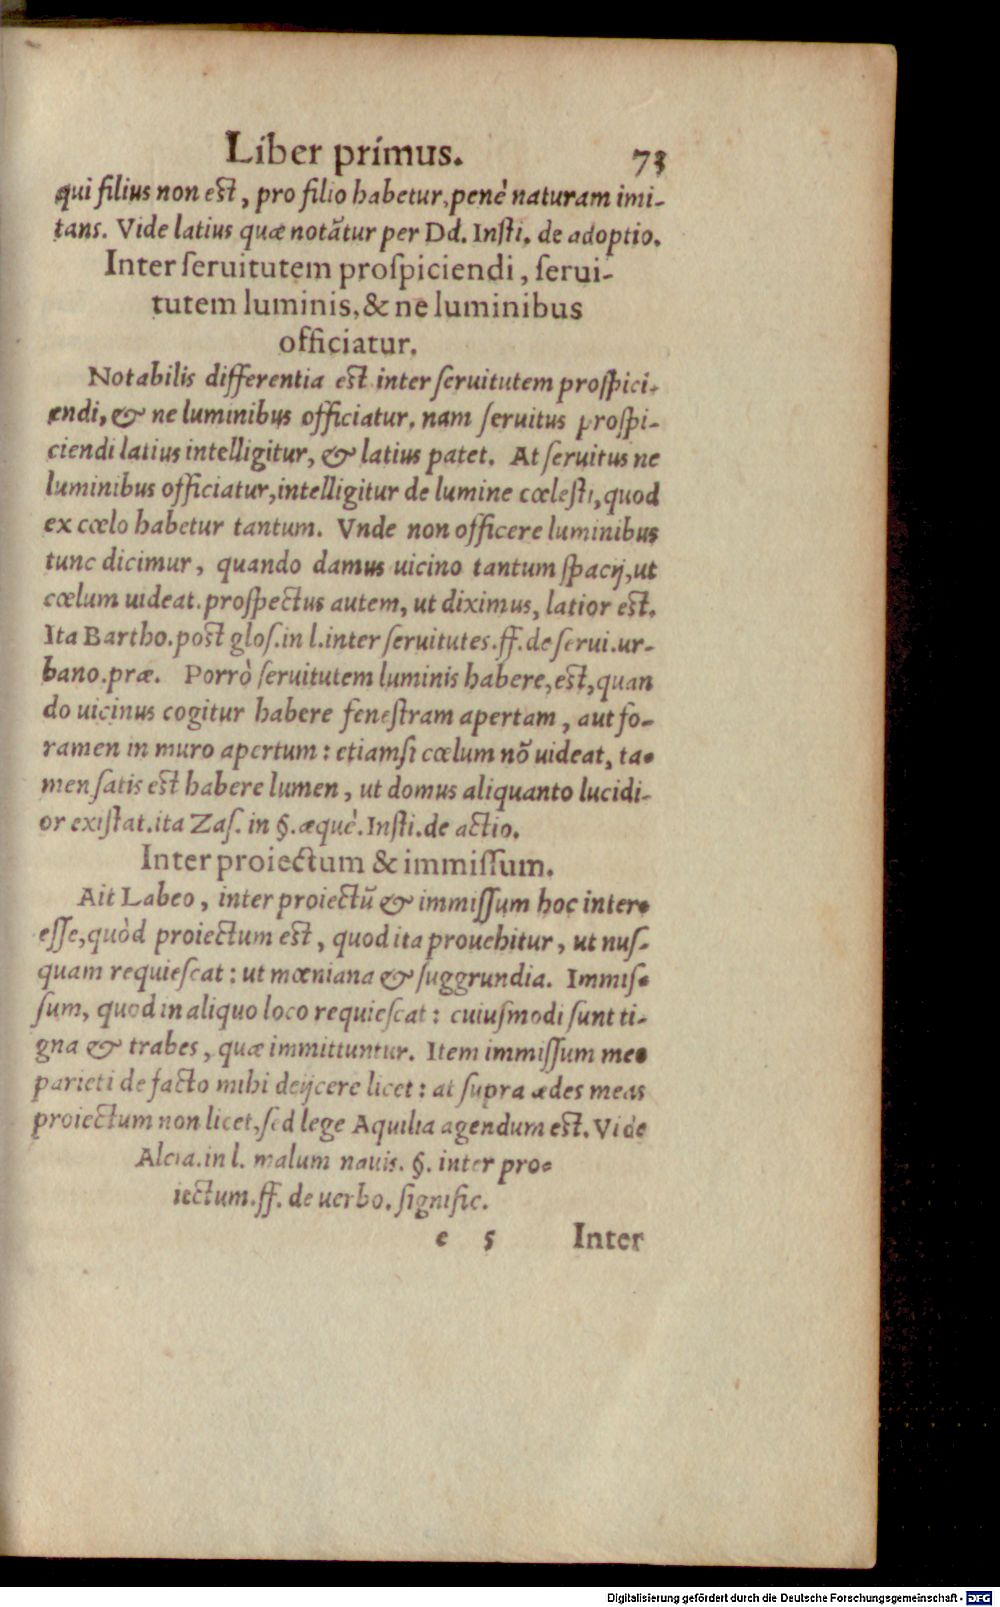 Liber primus. 73
qui filius non est, pro filio habetur, penè naturam imi-
tans. Vide latius quæ notātur per Dd. Insti. de adoptio.
Inter ſeruitutem proſpiciendi, ſerui-
tutem luminis, & ne luminibus
officiatur.
Notabilis differentia est inter ſeruitutem proſpici-
endi, & ne luminibus officiatur. nam ſeruitus proſpi-
ciendi latius intelligitur, & latius patet. At ſeruitus ne
luminibus officiatur, intelligitur de lumine cœleſti, quod
ex cœlo habetur tantum. Vnde non officere luminibus
tunc dicimur, quando damus uicino tantum ſpacij, ut
cœlum uideat. proſpectus autem, ut diximus, latior est.
Ita Bartho. post gloſ. in l. inter ſeruitutes. ff. de ſerui. ur-
bano. præ. Porrò ſeruitutem luminis habere, est, quan
do uicinus cogitur habere feneſtram apertam, aut fo-
ramen in muro apertum: etiamſi cœlum nō uideat, ta-
men ſatis est habere lumen, ut domus aliquanto lucidi-
or exiſtat. ita Zaſ. in §. æquè. Inſti. de actio.
Inter proiectum & immiſſum.
Ait Labeo, inter proiectū & immiſſum hoc inter-
eſſe, quòd proiectum est, quod ita prouehitur, ut nuſ-
quam requieſcat: ut mœniana & ſuggrundia. Immiſ-
ſum, quod in aliquo loco requieſcat: cuiuſmodi ſunt ti-
gna & trabes, quæ immittuntur. Item immiſſum meo
parieti de facto mihi deijcere licet: at ſupra ædes meas
proiectum non licet, ſed lege Aquilia agendum est. Vide
Alcia. in l. malum nauis. §. inter pro-
iectum. ff. de uerbo. ſignific.
e 5 Inter
Digitalisierung gefördert durch die Deutsche Forschungsgemeinschaft - DFG